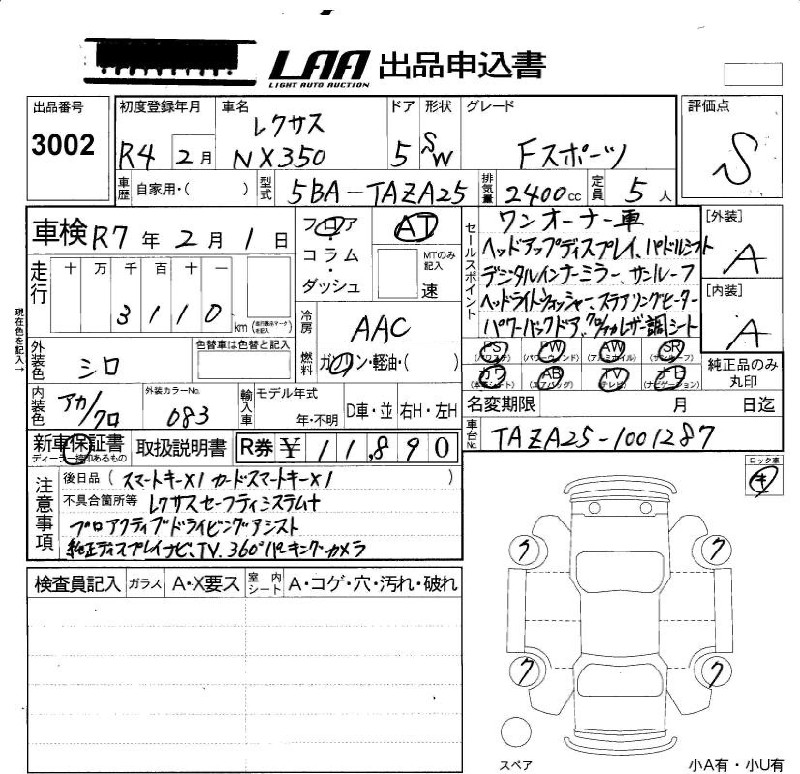 LAA 出品申込書
LIGHT AUTO AUCTION
出品番号 3002
初度登録年月 R4 2月
車名 レクサス NX350
ドア 5
形状 SW
グレード Fスポーツ
評価点 S
車歴 自家用・( )
型式 5BA-TAZA25
排気量 2400cc
定員 5人
車検 R7年2月1日
フロア・コラム・ダッシュ
AT
MTのみ記入 速
セールスポイント
ワンオーナー車
ヘッドアップディスプレイ、パドルシフト
デジタルインナーミラー、サンルーフ
ヘッドライトウォッシャー、ステアリングヒーター
パワーバックドア、
[外装] A
[内装] A
現在色を記入→
走行 十 万 千 百 十 一
3110 km
冷房 AAC
燃料 ガソリン・軽油・( )
外装色 シロ
色替車は色替と記入
内装色 アカ/クロ
外装カラーNo. 083
輸入車 モデル年式 年・不明
D車・並 右H・左H
PS (パワステ) PW (パワーウィンド) AW (アルミホイル) SR (サンルーフ)
カワ (本革シート) AB (エアバッグ) TV (テレビ) ナビ (ナビゲーション)
純正品のみ丸印
名変期限 月 日迄
車台No. TAZA25-1001287
新車保証書
取扱説明書
R券 ¥11,890
注意事項
後日品( スマートキーX1 カードスマートキーX1 )
不具合箇所等 レクサスセーフティシステム+
プロアクティブドライビングアシスト
純正ディスプレイナビ、TV、360°パーキングカメラ
検査員記入 ガラス A・X要ス 室内シート A・コゲ・穴・汚れ・破れ
ロック車
キ
ク ク
ク ク
スペア
小A有・小U有